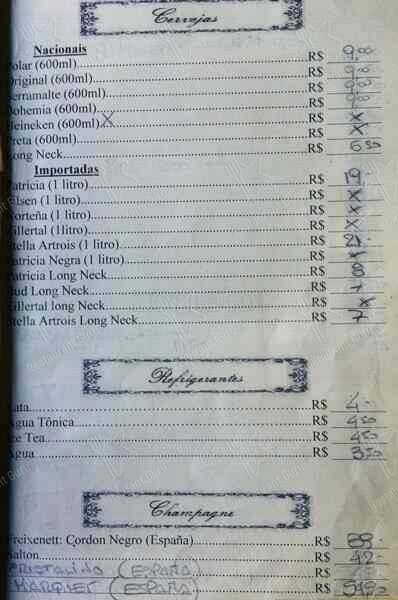 Cervejas
Nacionais
Polar (600ml) R$ 9,00
Original (600ml) R$ 9,00
Serramalte (600ml) R$ 9,00
Bohemia (600ml) R$ 9,00
Heineken (600ml) X R$ X
Preta (600ml) R$ X
Long Neck R$ 6,50
Importadas
Patricia (1 litro) R$ 19,-
Pilsen (1 litro) R$ X
Norteña (1 litro) R$ X
Zillertal (1litro) R$ X
Stella Artrois (1 litro) R$ 21,-
Patricia Negra (1 litro) R$ X
Patricia Long Neck R$ 8
Bud Long Neck R$ 7
Zillertal long Neck R$ X
Stella Artrois Long Neck R$ 7
Refrigerantes
Lata R$ 4,-
Água Tônica R$ 4,50
Ice Tea R$ 4,50
Água R$ 3,50
Champagne
Freixenett: Cordon Negro (España) R$ 88,-
Salton R$ 42,-
CRISTALINO (ESPAÑA) R$
MARQUET (ESPAÑA) R$